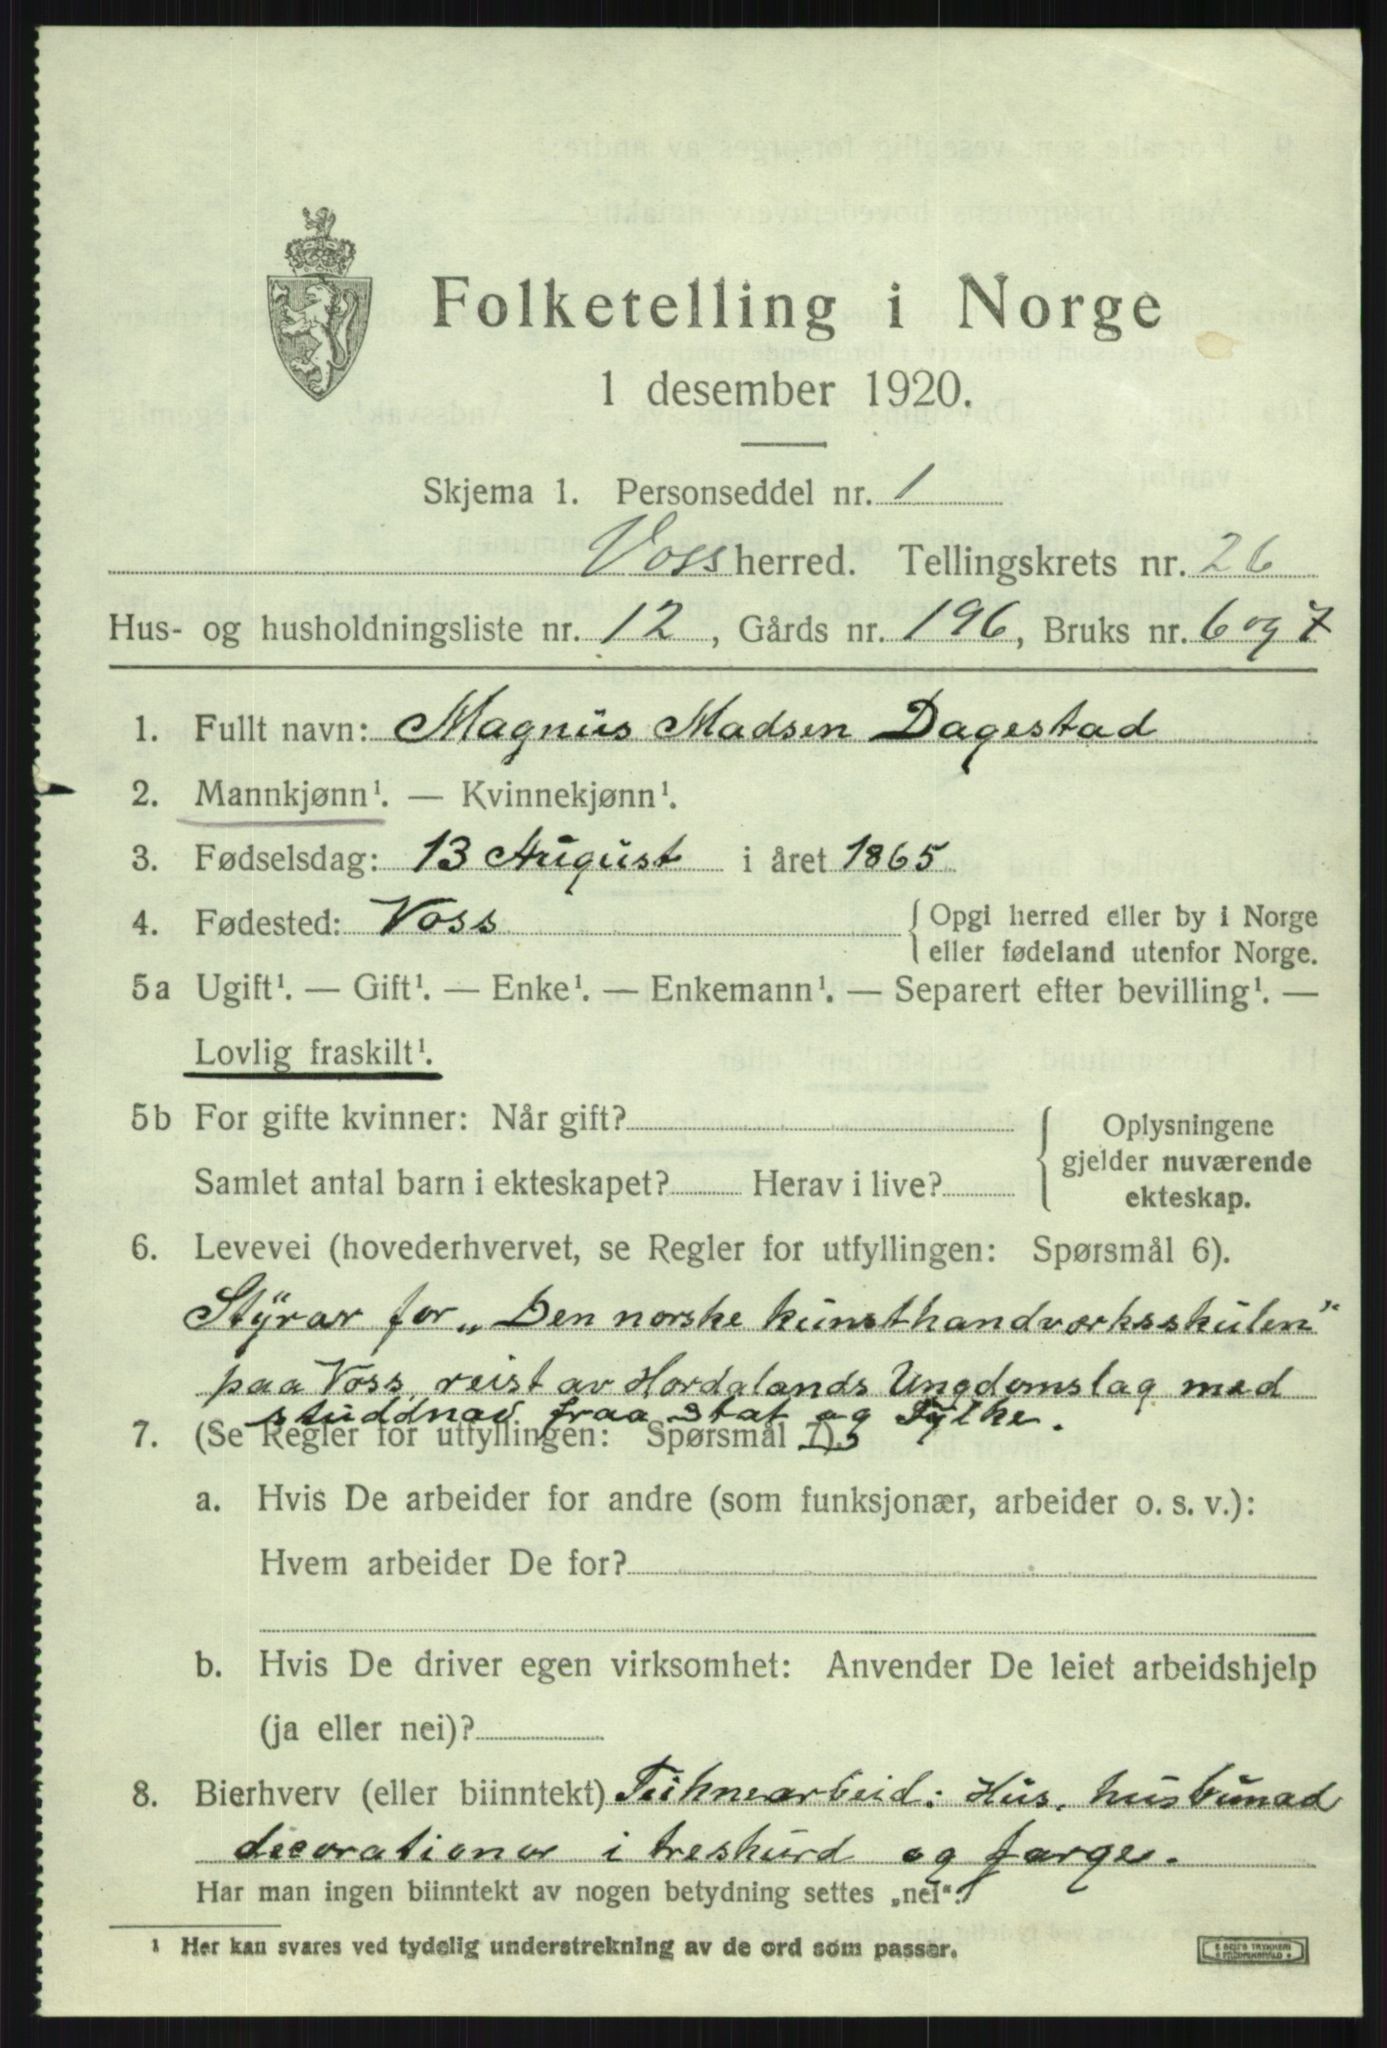 Folketelling i Norge
1 desember 1920.
Skjema 1. Personseddel nr. 1
Voss herred. Tellingskrets nr. 26
Hus- og husholdningsliste nr. 12, Gårds nr. 196, Bruks nr. 6 og 7
1. Fullt navn: Magnus Madsen Dagestad
2. Mannkjønn¹. — Kvinnekjønn¹.
3. Fødselsdag: 13 August i året 1865
4. Fødested: Voss { Opgi herred eller by i Norge
eller fødeland utenfor Norge.
5a Ugift¹. — Gift¹. — Enke¹. — Enkemann¹. — Separert efter bevilling¹. —
Lovlig fraskilt¹.
5b For gifte kvinner: Når gift?
Samlet antal barn i ekteskapet? Herav i live?
{ Oplysningene
gjelder nuværende
ekteskap.
6. Levevei (hovederhvervet, se Regler for utfyllingen: Spørsmål 6).
Stÿrar for „Den norske kunsthandverksskulen"
paa Voss, reist av Hordalands Ungdomslag med
studdnad fraa Stat og Fylke.
7. (Se Regler for utfyllingen: Spørsmål 7).
a. Hvis De arbeider for andre (som funksjonær, arbeider o. s. v.):
Hvem arbeider De for?
b. Hvis De driver egen virksomhet: Anvender De leiet arbeidshjelp
(ja eller nei)?
8. Bierhverv (eller biinntekt) Teiknearbeid: Hus, husbunad
decorationar i treskurd og farge.
Har man ingen biinntekt av nogen betydning settes „nei".
¹ Her kan svares ved tydelig understrekning av de ord som passer.